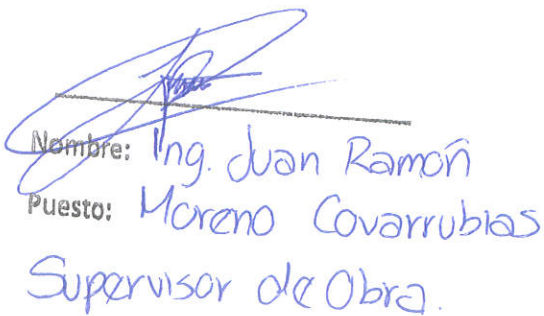 Nombre: Ing. Juan Ramón
Puesto: Moreno Covarrubias
Supervisor de Obra.